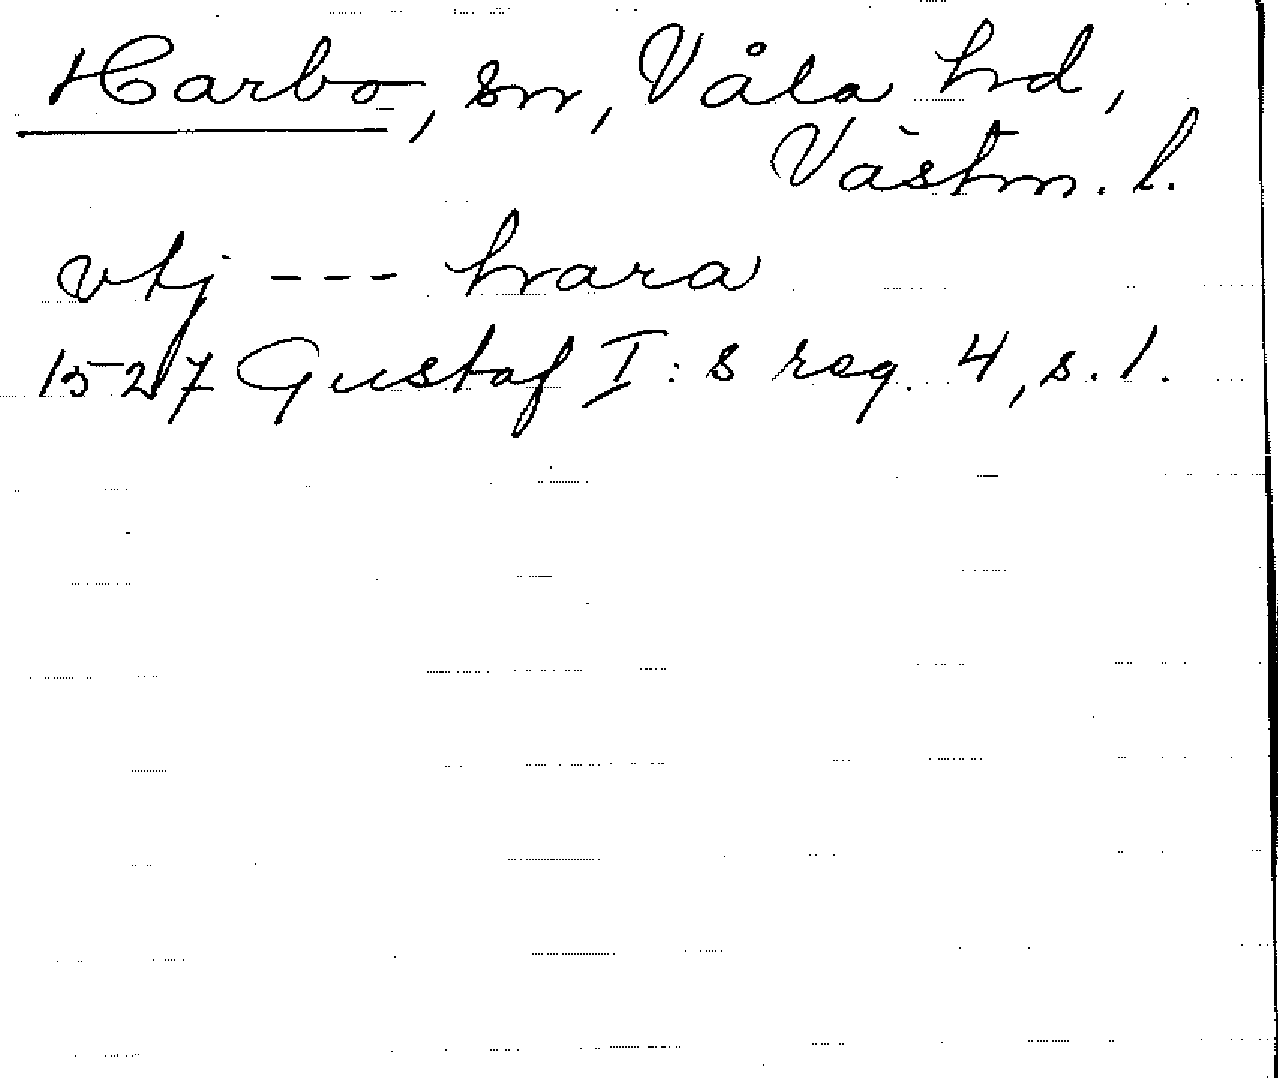 Harbo, sn, Våla hd,
Västm. l.
vtj --- hvara
1527 Gustaf I:s reg. 4, s. 1.